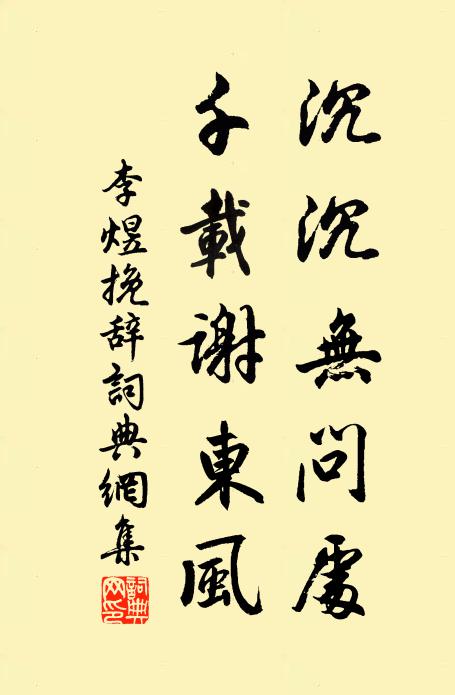 沉沉無問處
千載謝東風
李煜挽辞詞典網集
詞典网印